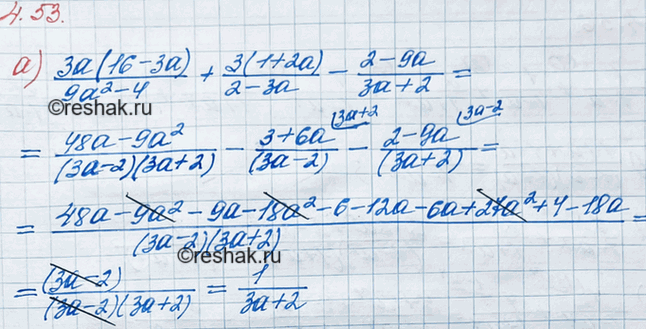 4.53.
а) 3a(16-3a)/(9a²-4) + 3(1+2a)/(2-3a) - (2-9a)/(3a+2) =
©reshak.ru
= (48a-9a²)/((3a-2)(3a+2)) - (3+6a)/(3a-2) (3a+2 - (2-9a)/(3a+2) (3a-2 =
= (48a-9a²-9a-18a²-6-12a-6a+27a²+4-18a)/((3a-2)(3a+2)) =
©reshak.ru
= (3a-2)/((3a-2)(3a+2)) = 1/(3a+2)